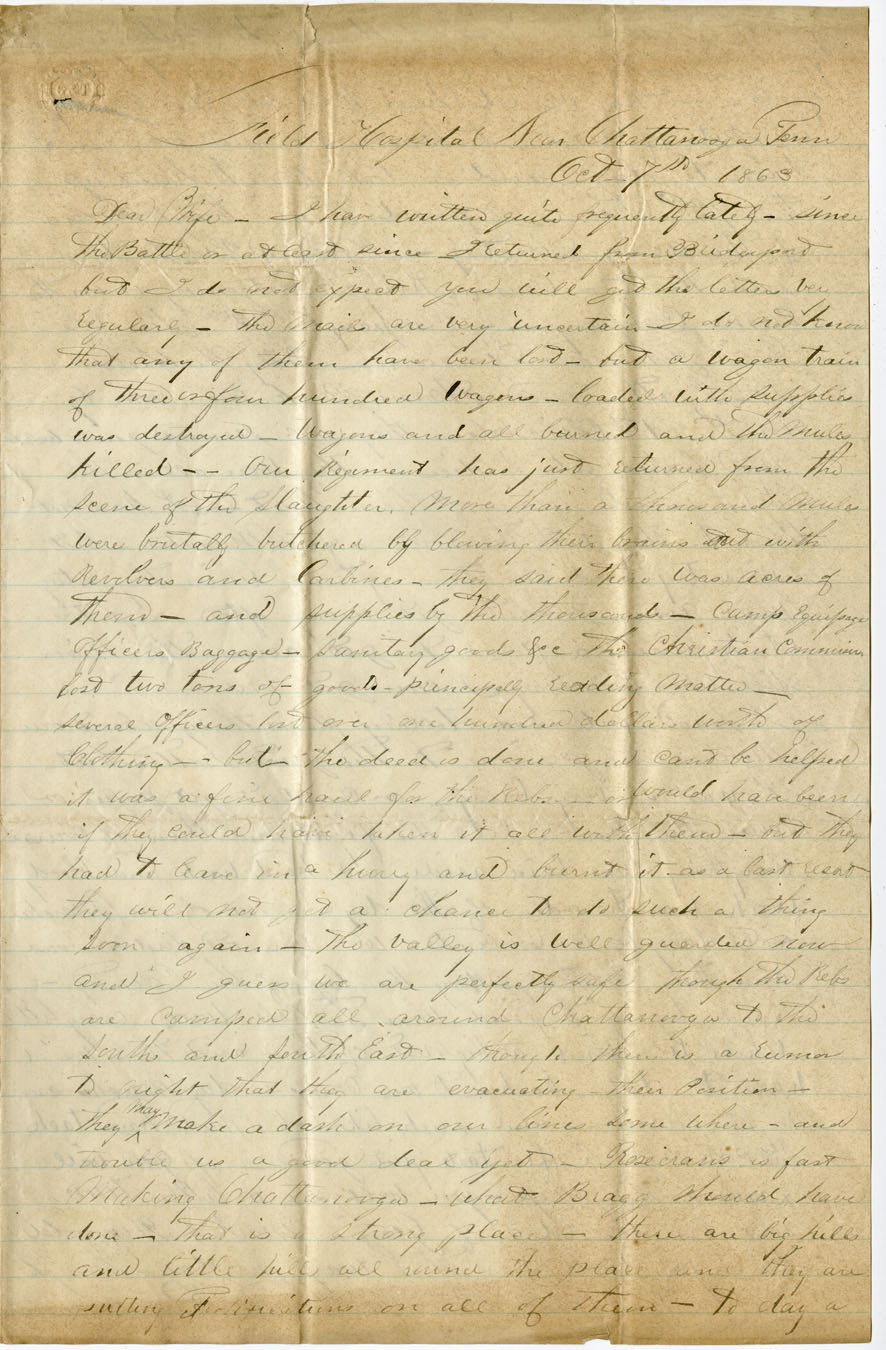 Field Hospital Near Chattanooga Tenn
Oct 7th 1863
Dear Wife – I have written quite frequently lately – since
the Battle or at least since I returned from Bridgeport
but I do not expect you will get the letters very
regularly – the mails are very uncertain – I do not know
that any of them have been lost – but a wagon train
of three or four hundred Wagons – loaded with supplies
was destroyed – Wagons and all burned and the Mules
killed – – Our Regiment has just returned from the
scene of the Slaughter. More than a thousand Mules
were brutally butchered by blowing their brains out with
Revolvers and Carbines – they said there was acres of
them – and supplies by the thousands – Camp Equipage
Officers Baggage – Sanitary goods &c The Christian Commission
lost two tons of goods – principally reading Matter –
several Officers lost over one hundred dollars worth of
Clothing – – but the deed is done and cant be helped
it was a fine haul for the Rebs – or would have been
if they could have taken it all with them – but they
had to leave in a hurry and burnt it – as a last resort
they will not get a chance to do such a thing
soon again – The valley is well guarded now
and I guess we are perfectly safe though the Rebs
are camped all around Chattanooga to the
South and South East – though there is a rumor
to night that they are evacuating their Position –
they may make a dash on our lines some where – and
trouble us a good deal yet – Rosecrans is fast
Making Chattanooga – what Bragg should have
done – that is a strong place – there are big hills
and little hills all round the place and they are
putting on all of them – to day a